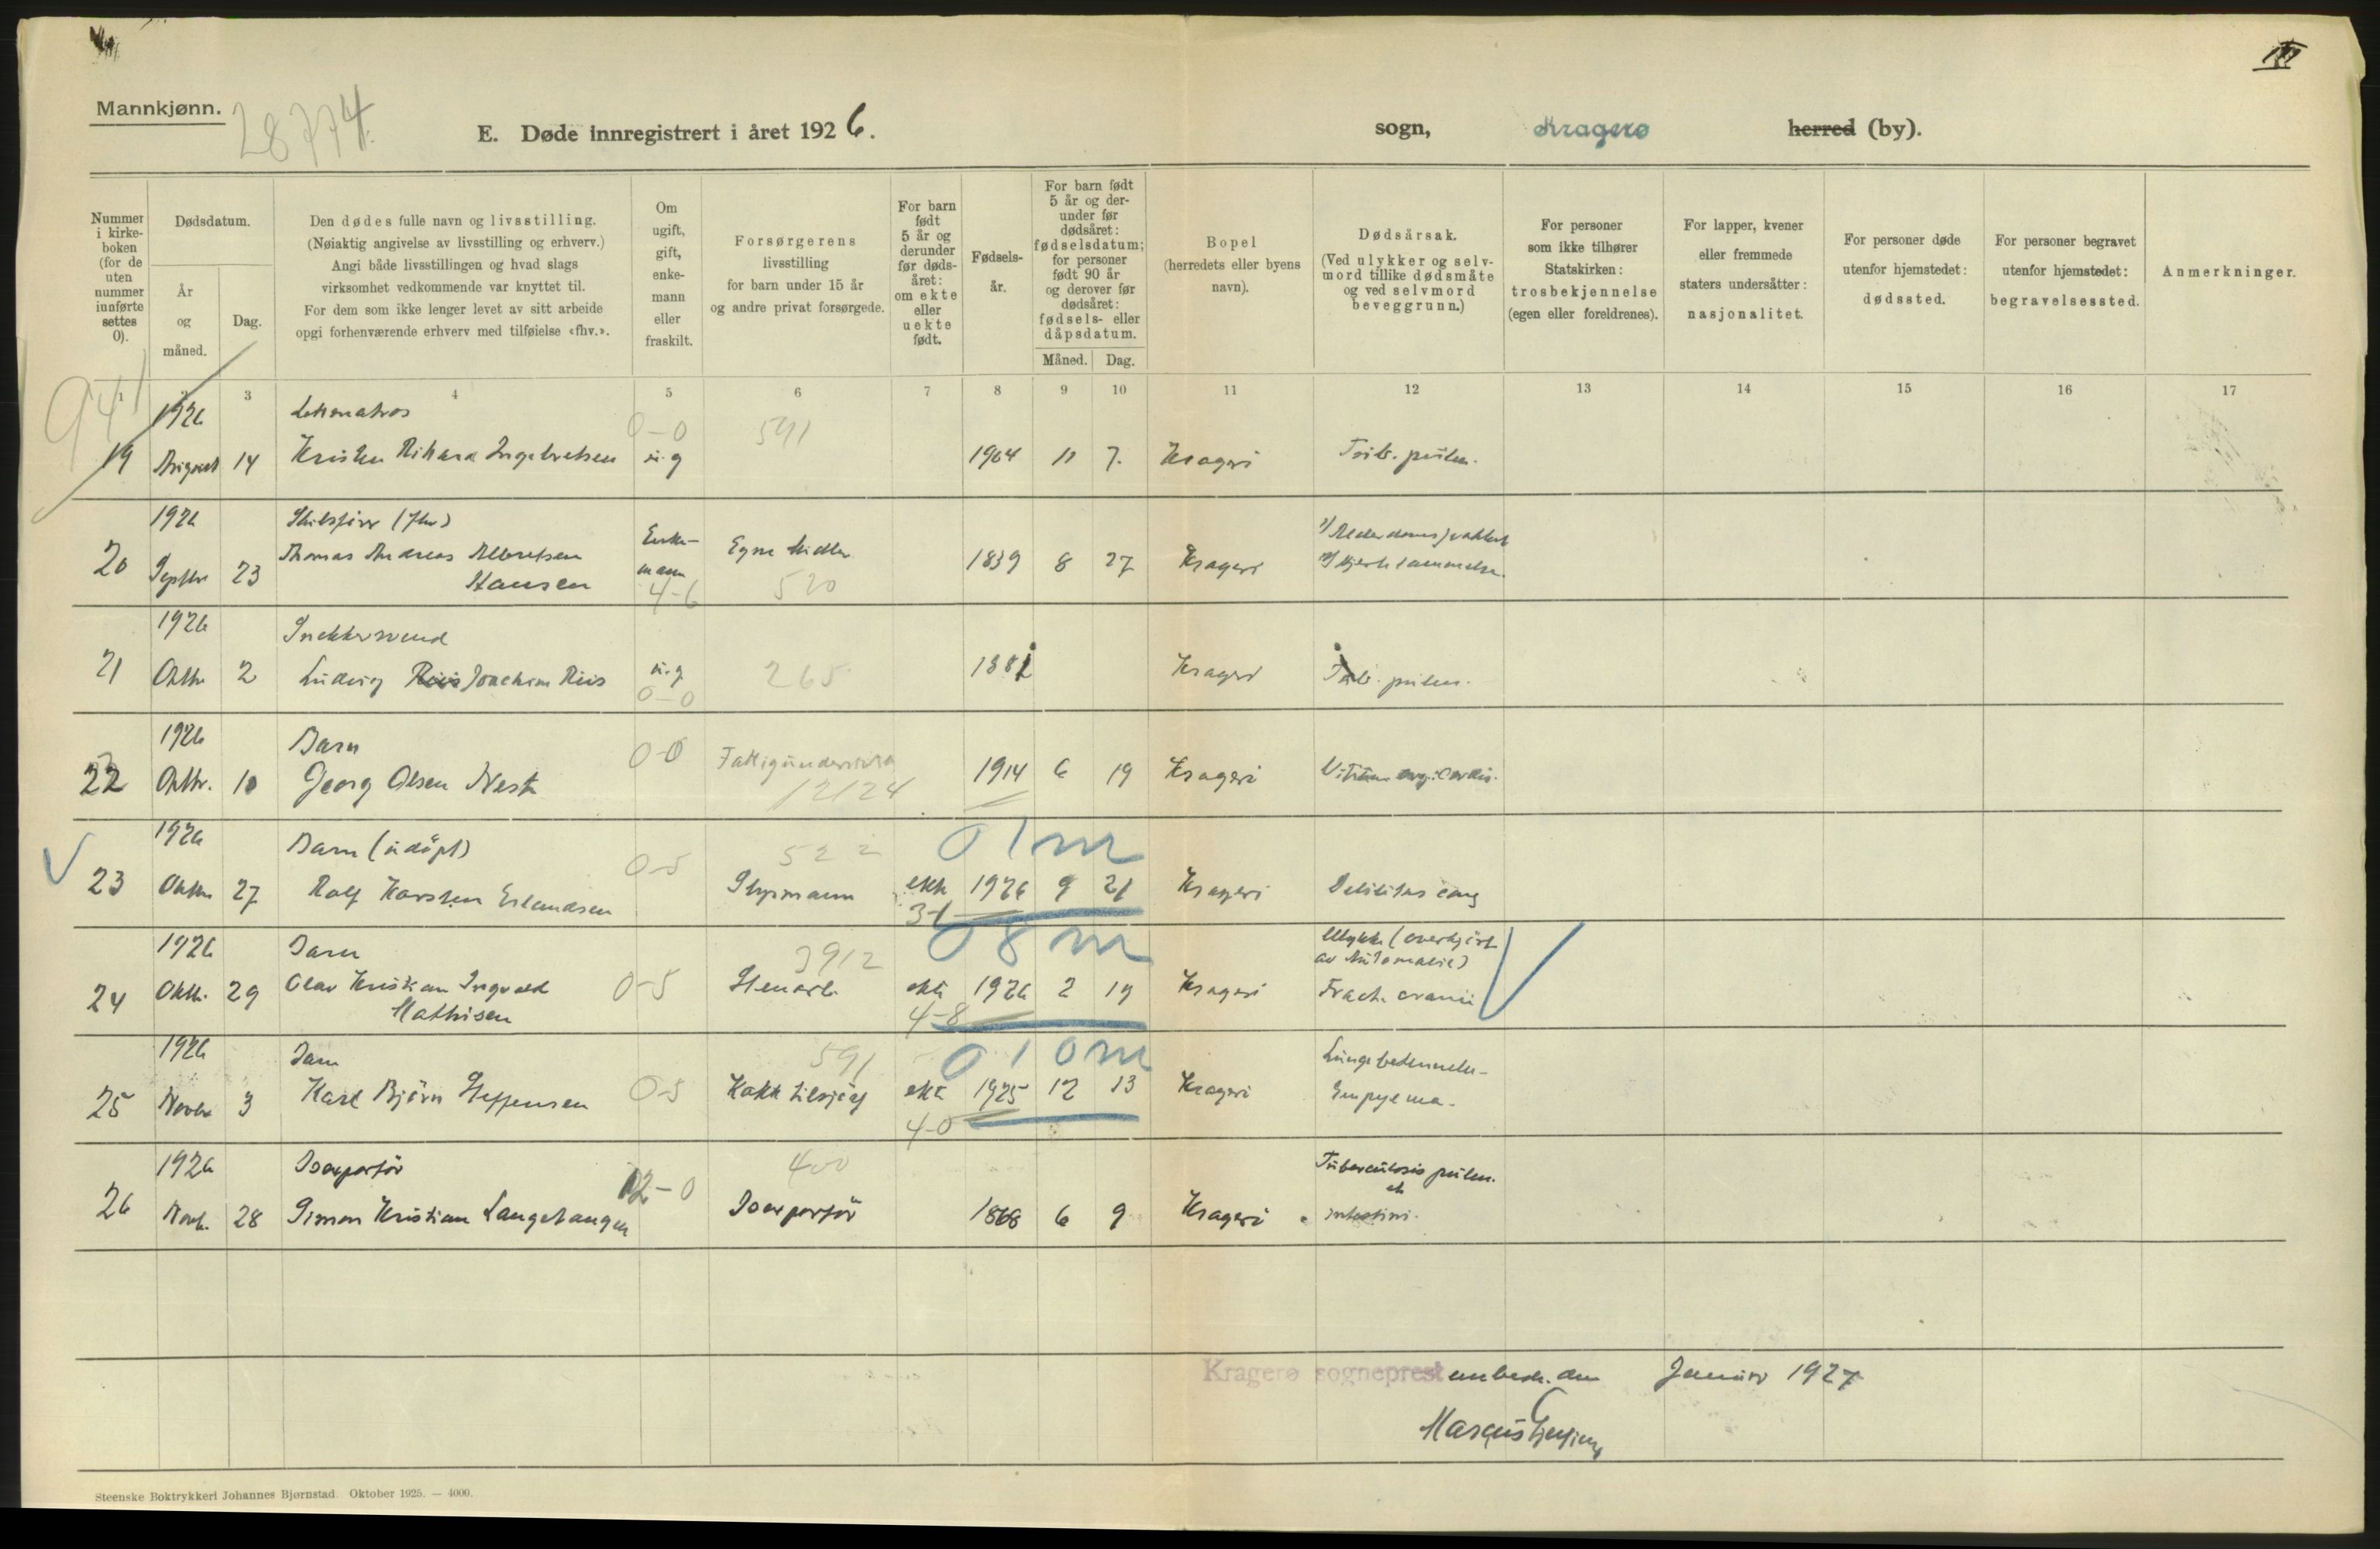 III
Mannkjønn.
28774.
E. Døde innregistrert i året 1926.
sogn, Kragerø herred (by).
Nummer i kirke-boken (for de uten nummer innførte settes 0).
Dødsdatum.
År og måned.
Dag.
Den dødes fulle navn og livsstilling.
(Nøiaktig angivelse av livsstilling og erhverv.)
Angi både livsstillingen og hvad slags
virksomhet vedkommende var knyttet til.
For dem som ikke lenger levet av sitt arbeide
opgi forhenværende erhverv med tilføielse «fhv.».
Om ugift, gift, enke-mann eller fraskilt.
Forsørgerens
livsstilling
for barn under 15 år
og andre privat forsørgede.
For barn født 5 år og derunder før døds-året: om ekte eller uekte født.
Fødsels-år.
For barn født 5 år og der-under før dødsåret: fødselsdatum; for personer født 90 år og derover før dødsåret: fødsels- eller dåpsdatum.
Måned. Dag.
Bopel
(herredets eller byens
navn).
Dødsårsak.
(Ved ulykker og selv-
mord tillike dødsmåte
og ved selvmord
beveggrunn.)
For personer
som ikke tilhører
Statskirken:
trosbekjennelse
(egen eller foreldrenes).
For lapper, kvener
eller fremmede
staters undersåtter:
nasjonalitet.
For personer døde
utenfor hjemstedet:
dødssted.
For personer begravet
utenfor hjemstedet:
begravelsessted.
Anmerkninger.
1 2 3 4 5 6 7 8 9 10 11 12 13 14 15 16 17
941
1926 Letmatros 0-0 591
19 August 14 Kristen Rikard Ingebretsen u.g 1904 11 7. Kragerö Tub. pulm.
1926 Skibsförer (fhv) Enke- 1/ Alderdomssvakhet
20 Septbr 23 Thomas Andreas Albretsen mann Egne Midler 1839 8 27 Kragerö 2/ Hjertelammelse.
Hansen 4-6 520
1926 Snekkersvend
21 Oktbr 2 Ludvig Riis Joachim Riis u.g 265 1882 Kragerö Tub. pulm.
0-0
1926 Barn 0-0 Fattigunderst.
22 Oktbr. 10 Georg Olsen Vest 12124 1914 6 19 Kragerö Vitium org. cordis.
1926 Barn (udöpt) 0-5 522 0 1 m
23 Oktbr 27 Rolf Karsten Erlandsen Styrmann ekte 1926 9 21 Kragerö Debilitas cong
3-1
1926 Barn 3912 0 8 m Ulykke (overkjört
av Automobil)
24 Oktb. 29 Olav Kristian Ingvald 0-5 Stenarb. ekte 1926 2 19 Kragerö Fract. cranii
Mathisen 4-8
1926 Barn 591 0 10 m Lungebetennelse -
25 Novbr 3 Karl Björn Steffensen 0-5 Kokk tilsjös ekte 1925 12 13 Kragerö Empyema.
4-0
1926 Isexportör 12-0 400 Tuberculosis pulm.
et
26 Novb. 28 Simon Kristian Langehaugen Isexportör 1868 6 9 Kragerö intestini.
Kragerø sogneprestembede. den Januar 1927
Marcus
Steenske Boktrykkeri Johannes Bjørnstad. Oktober 1925. — 4000.